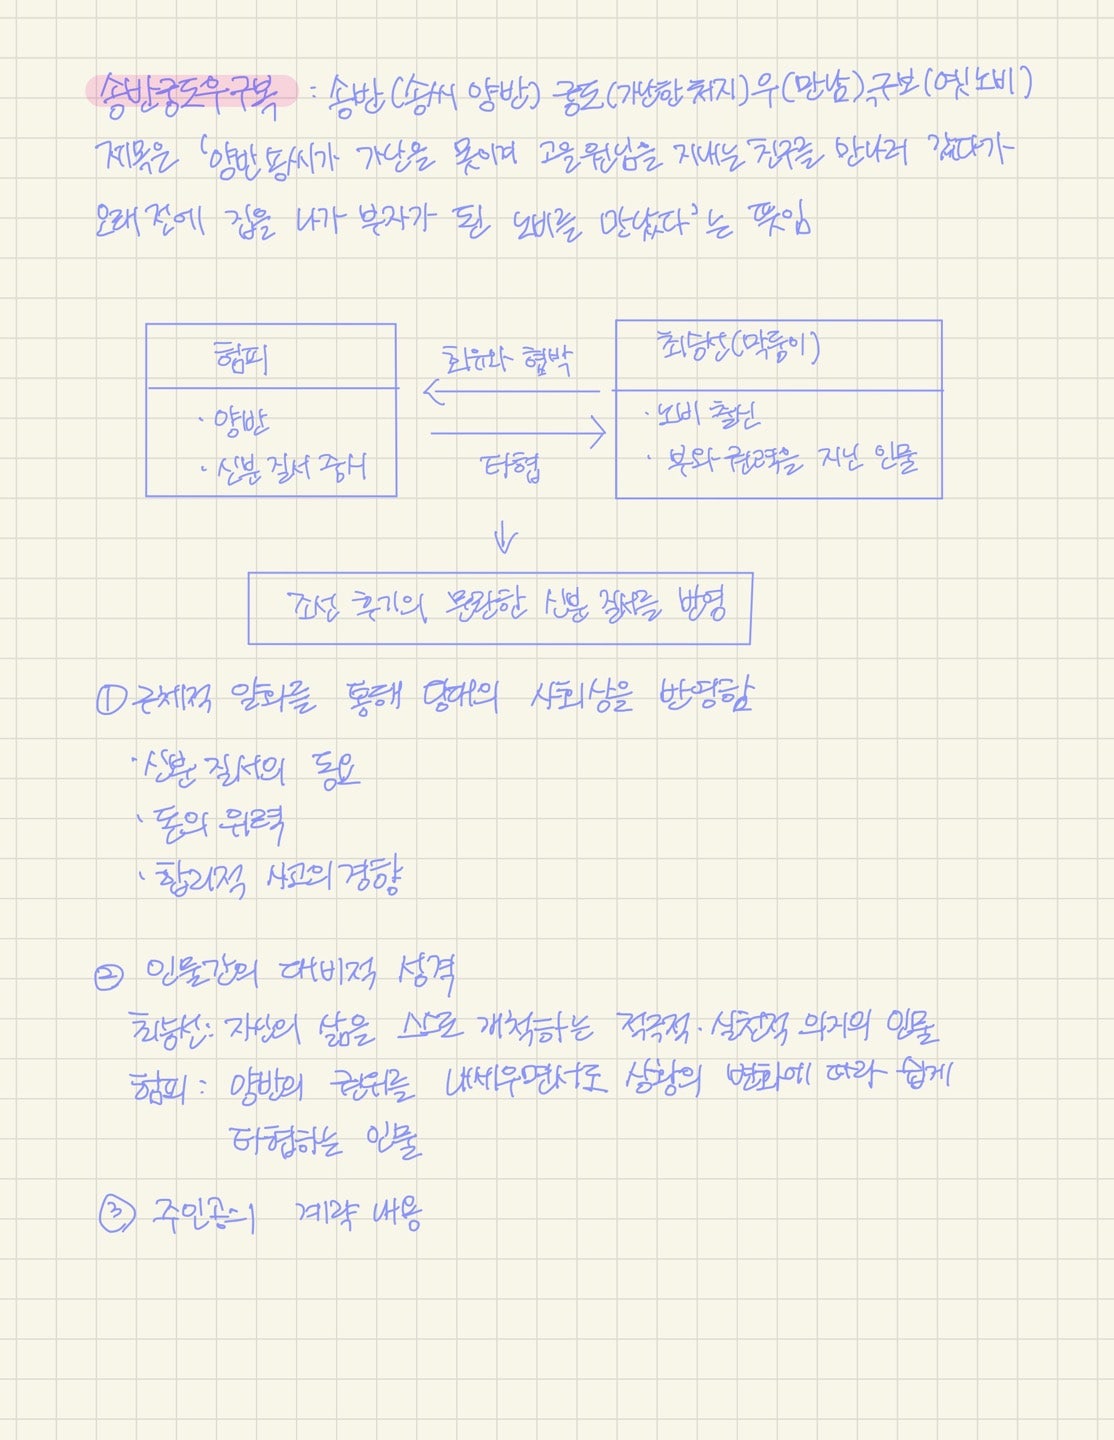 송반궁도우구복 : 송반(송씨 양반) 궁도(가난한 처지) 우(만남) 구보(옛 노비)
제목은 '양반 송씨가 가난을 못이겨 고을 원님을 지내는 친구를 만나러 갔다가
오래 전에 집을 나가 부자가 된 노비를 만났다'는 뜻임
험피
· 양반
· 신분 질서 중시
회유와 협박
타협
최승선(막둥이)
· 노비 출신
· 부와 권력을 지닌 인물
↓
조선 후기의 문란한 신분 질서를 반영
① 구체적 일화를 통해 당대의 사회상을 반영함
· 신분 질서의 동요
· 돈의 위력
· 합리적 사고의 경향
② 인물간의 대비적 성격
최승선: 자신의 삶을 스스로 개척하는 적극적·실천적 의지의 인물
험피 : 양반의 권위를 내세우면서도 상황의 변화에 따라 쉽게
타협하는 인물
③ 주인공의 계략 내용